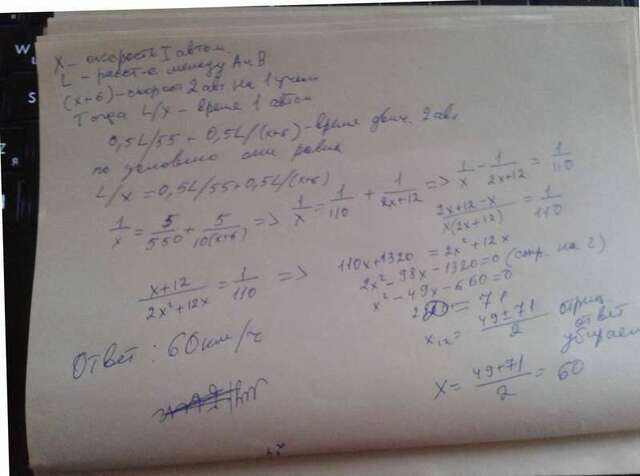 X - скорость I автом
L - расст-е между A и B
(x+6) - скорост 2 авт на 1 участ
Тогда L/x - время 1 автом
0,5L/55 + 0,5L/(x+6) - время движ. 2 авт
по условию они равны
L/x = 0,5L/55+0,5L/(x+6)
1/x = 5/550 + 5/10(x+6) => 1/x = 1/110 + 1/2x+12 => 1/x - 1/2x+12 = 1/110
2x+12-x/x(2x+12) = 1/110
x+12/2x²+12x = 1/110 => 110x+1320 = 2x²+12x
2x² - 98x - 1320 = 0 (сокр. на 2)
x² - 49x - 660 = 0
D = 71
x12 = 49±71/2 отриц ответ убираем
x = 49+71/2 = 60
Ответ: 60 км/ч